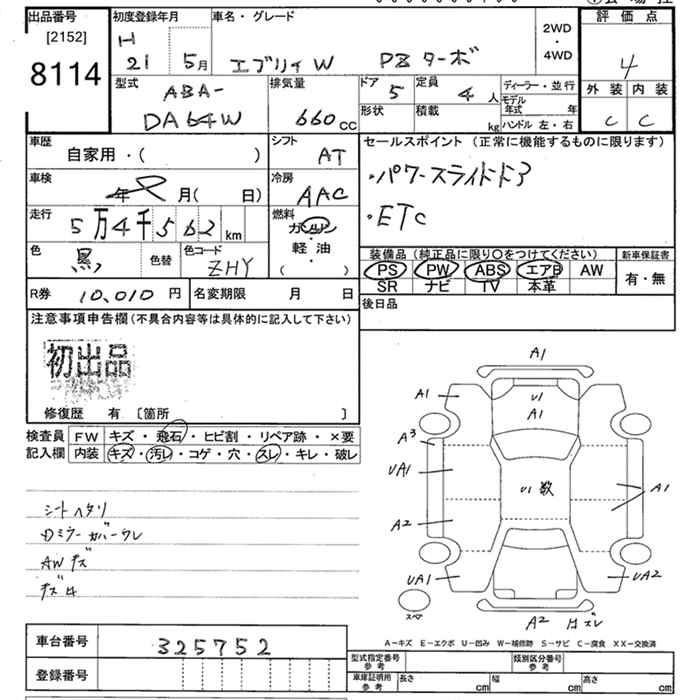 出品番号
[2152]
8114
初度登録年月
H
21 5月
車名・グレード
エブリイW PZターボ
2WD
・
4WD
評価点
4
外装 内装
C C
型式
ABA-
DA64W
排気量
660cc
ドア 5
定員 4人
形状
積載 kg
ディーラー・並行
モデル年式 年
ハンドル 左・右
車歴
自家用・( )
シフト
AT
セールスポイント (正常に機能するものに限ります)
・パワースライドドア
・ETC
車検
年 月( 日)
冷房
AAC
走行
5万4千562km
燃料
ガソリン
・
軽油
( )
色
黒
色替
色コード
ZHY
装備品 (純正品に限り〇をつけてください)
PS PW ABS エアB AW
SR ナビ TV 本革
新車保証書
有・無
R券 10,010円
名変期限 月 日
後日品
注意事項申告欄(不具合内容等は具体的に記入して下さい)
初出品
修復歴 有 〔箇所 〕
検査員
記入欄
FW キズ・飛石・ヒビ割・リペア跡・×要
内装 キズ・汚レ・コゲ・穴・スレ・キレ・破レ
シートヘタリ
Dミラーカバーワレ
AWキズ
A1
A1
U1
A1
A3
UA1
U1 数
A1
A2
UA1
UA2
スペア
A2
A-キズ E-エクボ U-凹み W-補修跡 S-サビ C-腐食 XX-交換済
車台番号 325752
登録番号
型式指定番号
参考
類別区分番号
参考
車庫証明用
参考
長さ cm 幅 cm 高さ cm